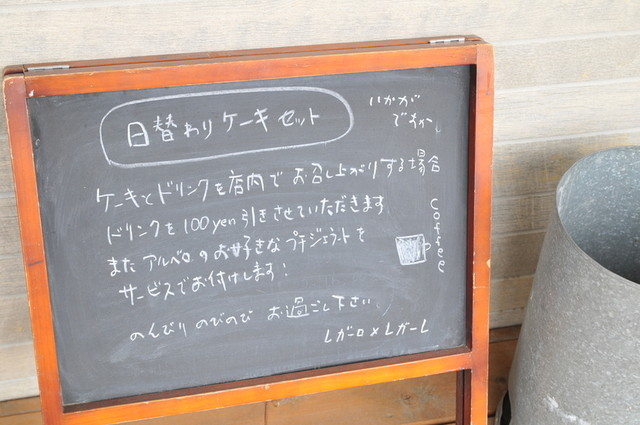 日替わりケーキセット
いかが
ですか
ケーキとドリンクを店内でお召し上がりする場合
ドリンクを100yen引きさせていただきます
また アルベロのお好きなプチジェラートを
サービスでお付けします!
のんびりのびのび お過ごし下さい
Coffee